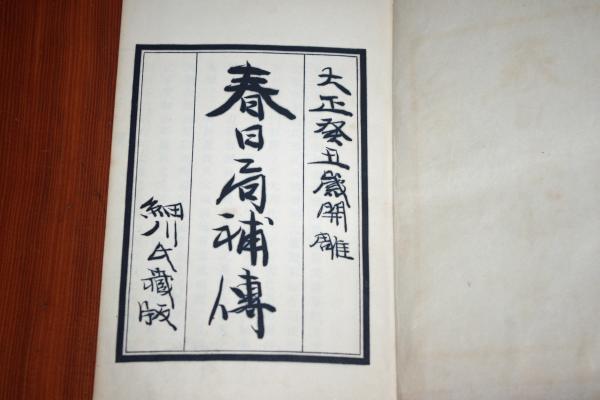 大正癸丑歳開雕
春日局補傳
細川氏藏版